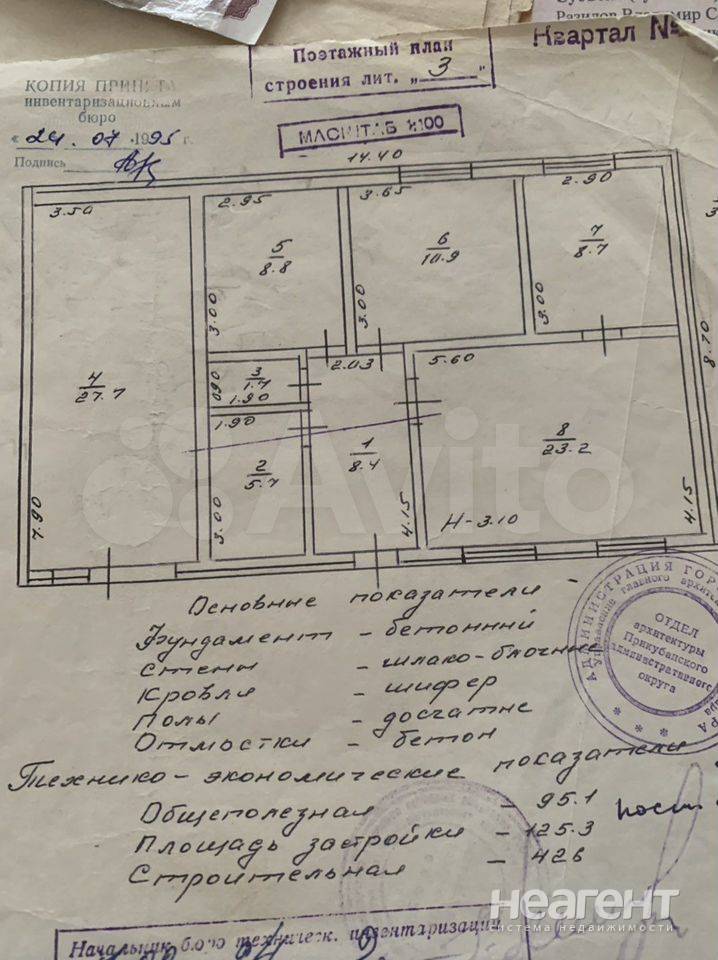 Поэтажный план
строения лит. „3"
Квартал №
КОПИЯ
инвентаризационным
бюро
«24. 07 1995 г.
Подпись
МАСШТАБ 1:100
14.40
3.50
2.95
3.65
2.90
5
8.8
6
10.9
7
8.7
3.00
3.00
3.00
8.70
4
27.7
3
1.7
0.90
1.90
2.03
5.60
1.90
2
5.7
1
8.4
8
23.2
7.90
3.00
4.15
Н-3.10
4.15
Основные показатели -
Фундамент - бетонный
Стены - шлако-блочные
Кровля - шифер
Полы - досчатые
Отмостки - бетон
Технико-экономические показатели
Общеполезная - 95.1
Площадь застройки - 125.3
Строительная - 426
ОТДЕЛ
архитектуры
Прикубанского
административного
округа
Avito
Неагент
система недвижимости
Начальник бюро техническ. инвентаризации